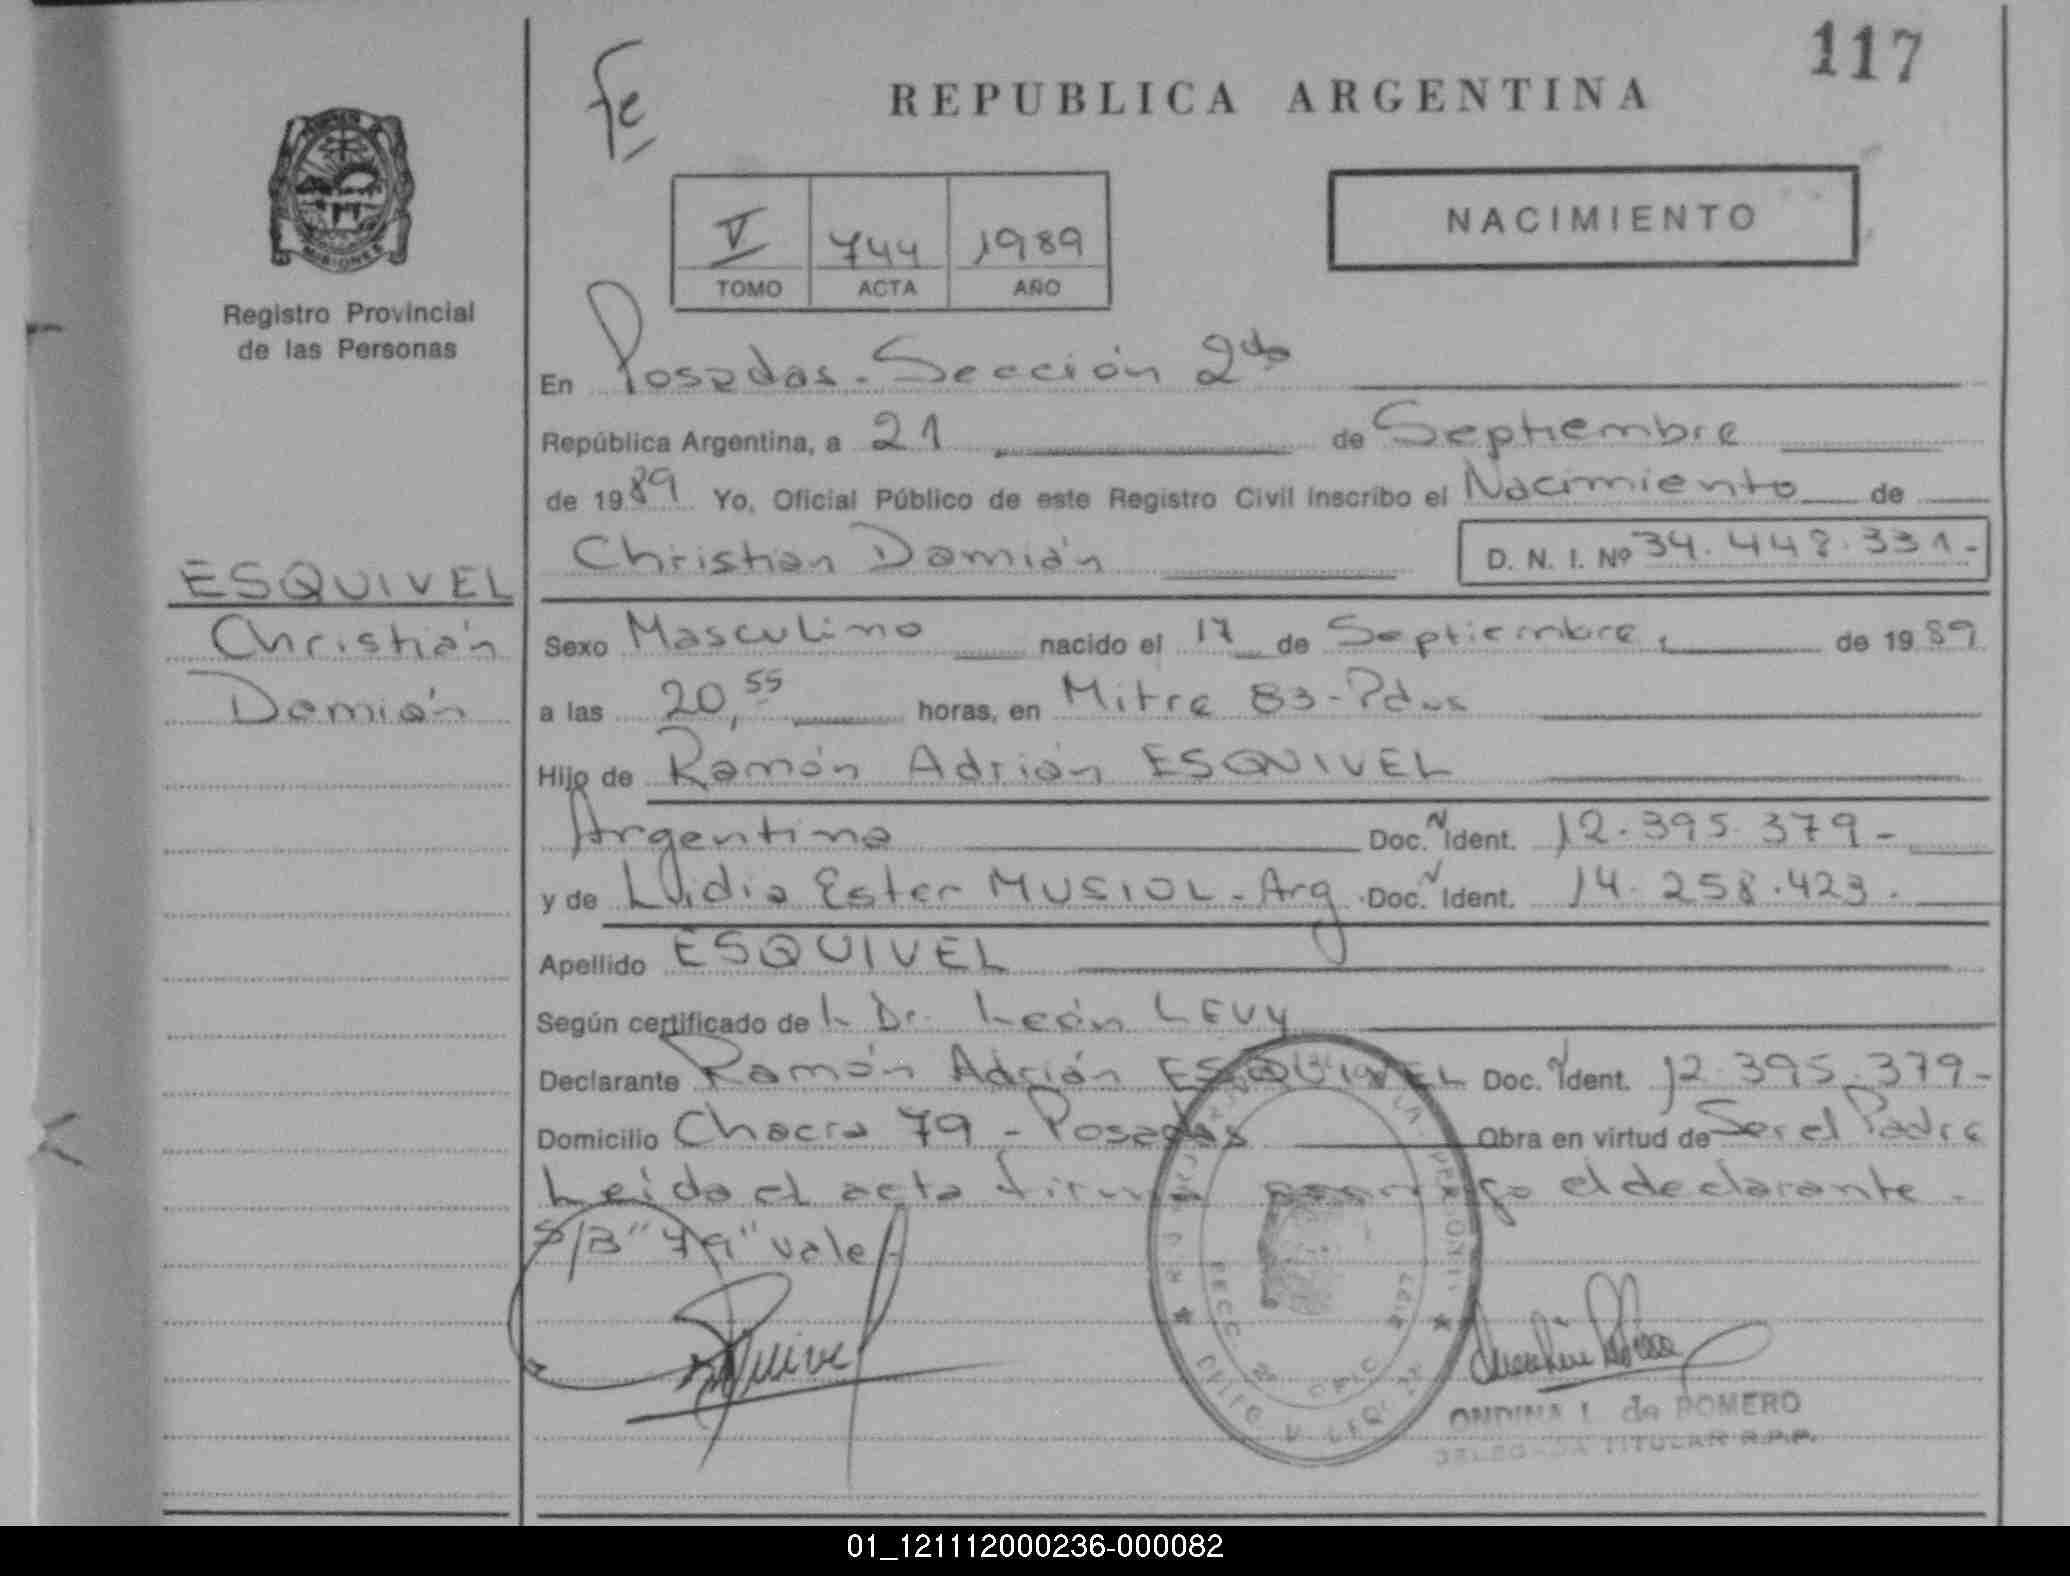 117
Fe
REPUBLICA ARGENTINA
MISIONES
Registro Provincial
de las Personas
V 744 1989
TOMO ACTA AÑO
NACIMIENTO
En Posadas - Sección 2da
República Argentina, a 21 de Septiembre
de 1989 Yo, Oficial Público de este Registro Civil inscribo el Nacimiento de
Christian Damián D. N. I. Nº 34.448.331-
ESQUIVEL
Christián
Damián
Sexo Masculino nacido el 17 de Septiembre, de 1989
a las 20,55 horas, en Mitre 83 - Pdas
Hijo de Ramón Adrián ESQUIVEL
Argentino Doc. N Ident. 12.395.379-
y de Lidia Ester MUSIOL - Arg. Doc. N Ident. 14.258.423.
Apellido ESQUIVEL
Según certificado de L Dr. León LEVY
Declarante Ramón Adrián ESQUIVEL Doc. N Ident. 12.395.379-
Domicilio Chacra 79 - Posadas Obra en virtud de Ser el Padre
Leída el acta firma conmigo el declarante.
S/B "79" vale
ONDINA I. de ROMERO
DELEGADA TITULAR R.P.P.
01_121112000236-000082